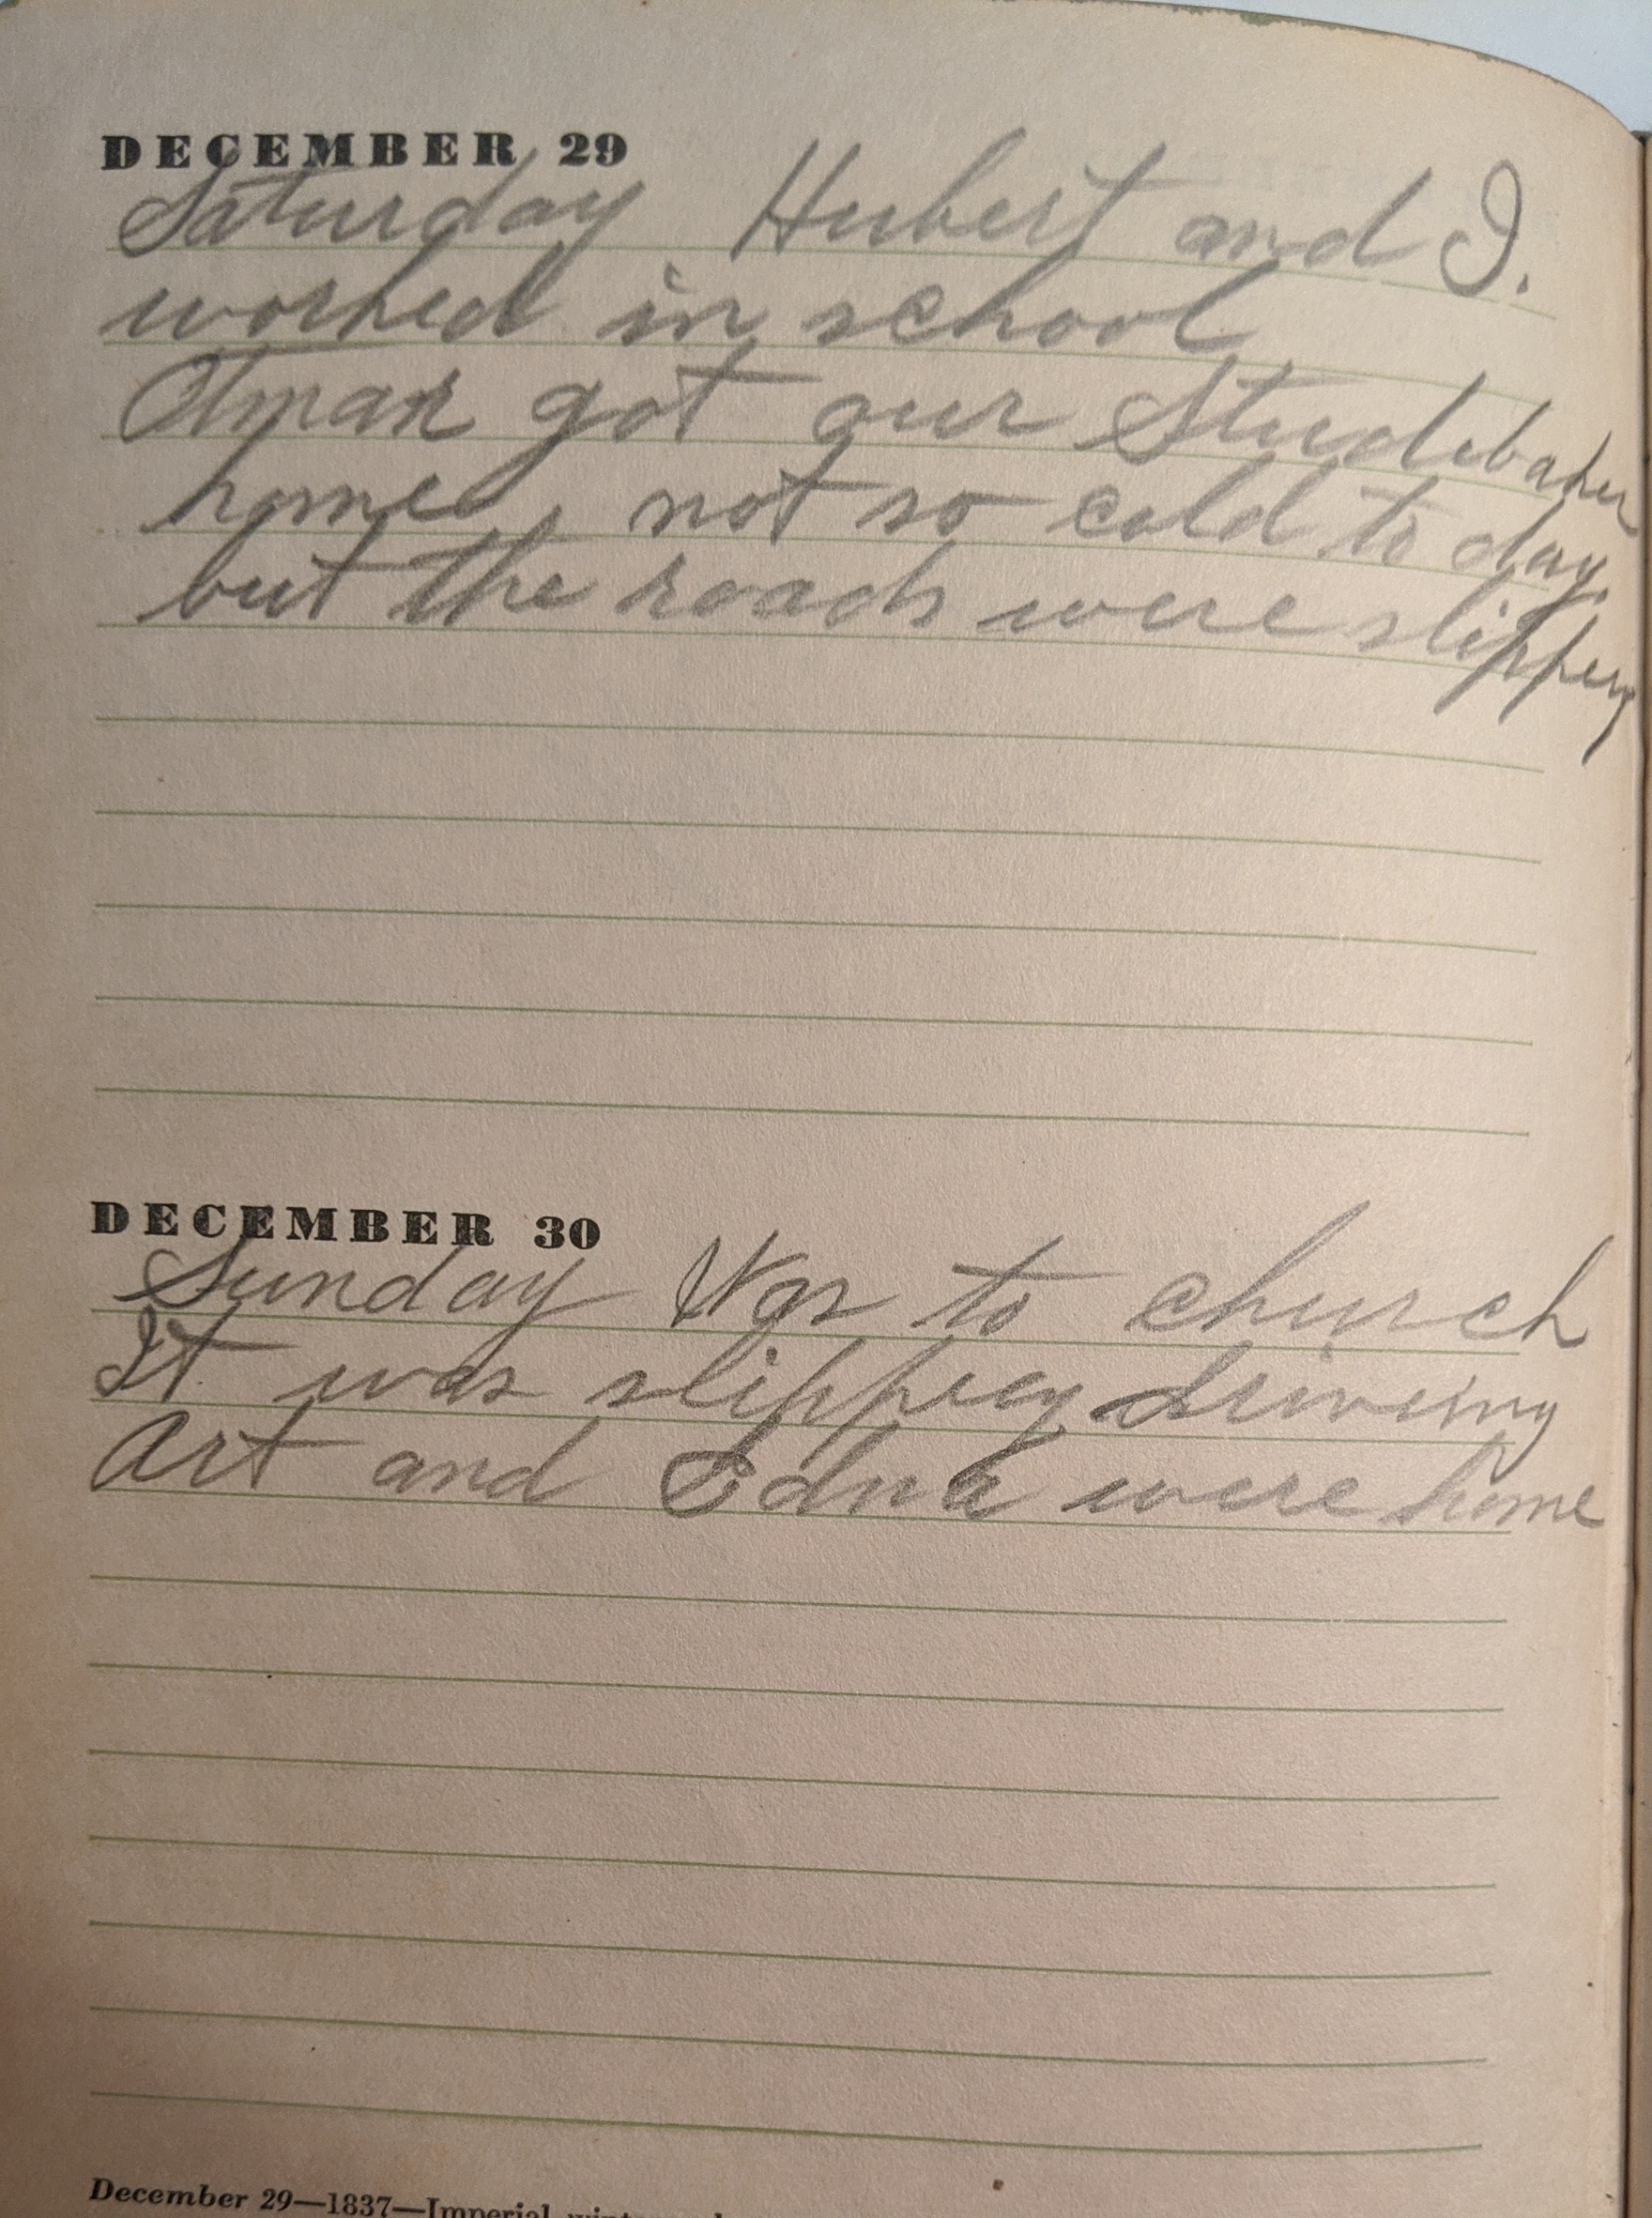 DECEMBER 29
Saturday Hubert and I.
worked in school
Otmar got our Studebaker
home, not so cold to day,
but the roads were slippery
DECEMBER 30
Sunday Was to church
It was slippery driveing
Art and Edna were home
December 29—1837—Imperial